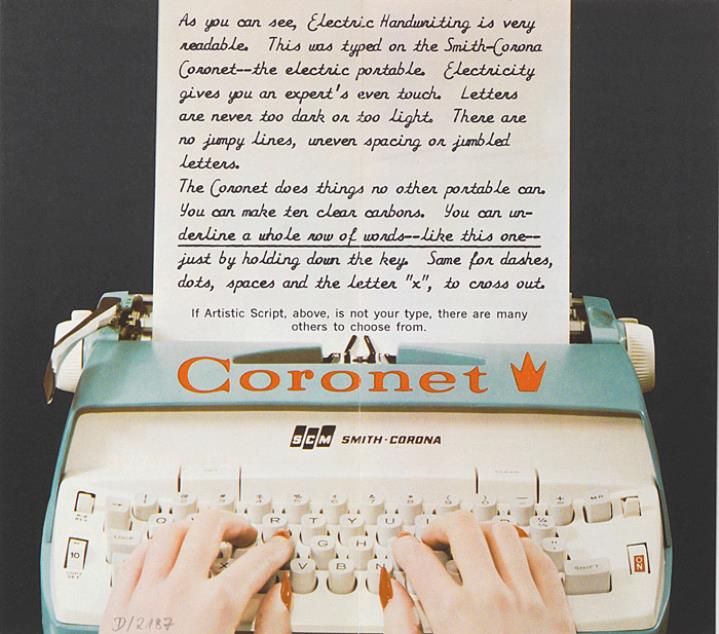 As you can see, Electric Handwriting is very
readable. This was typed on the Smith-Corona
Coronet--the electric portable. Electricity
gives you an expert's even touch. Letters
are never too dark or too light. There are
no jumpy lines, uneven spacing or jumbled
letters.
The Coronet does things no other portable can.
You can make ten clear carbons. You can un-
derline a whole row of words--like this one--
just by holding down the key. Same for dashes,
dots, spaces and the letter "x", to cross out.
If Artistic Script, above, is not your type, there are many
others to choose from.
Coronet
SCM SMITH-CORONA
R T Y U
G H
X V B N
10
ON
SHIFT
D/2187